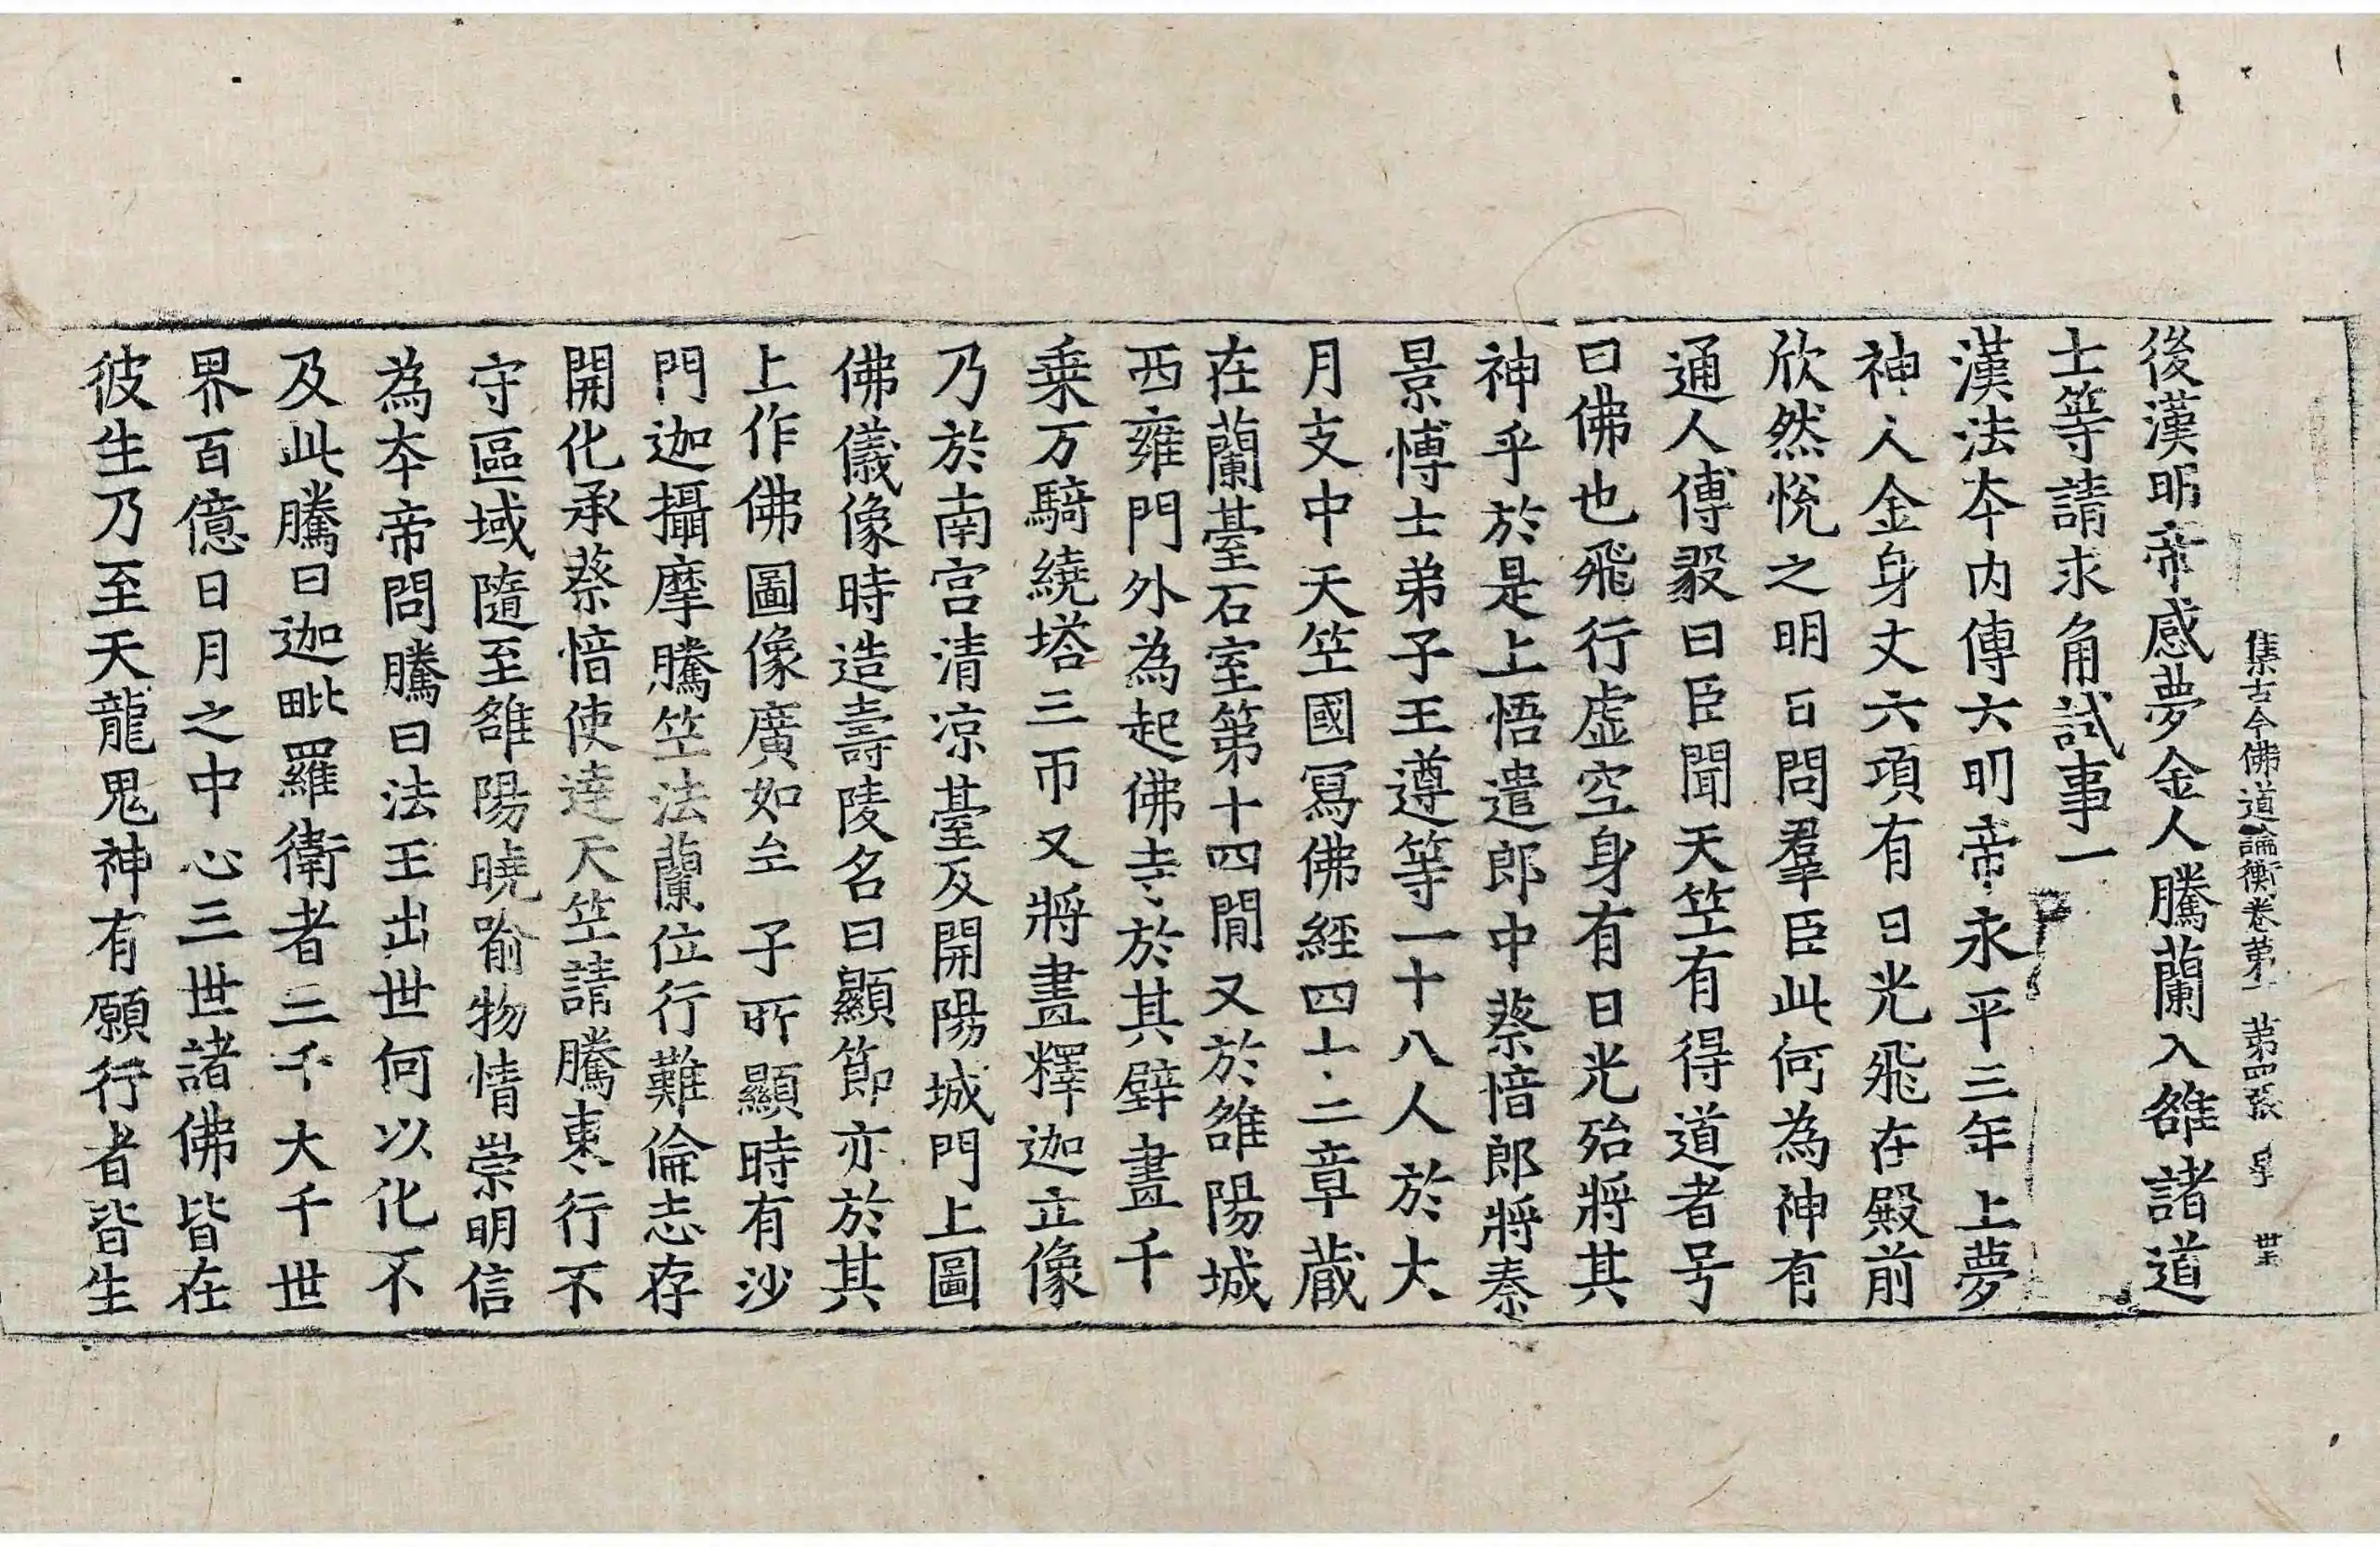 集古今佛道論衡卷第一 第四張 㝵 世王
後漢明帝感夢金人騰蘭入雒諸道
士等請求角試事一
漢法本內傳云明帝永平三年上夢
神人金身丈六項有日光飛在殿前
欣然悅之明日問羣臣此何為神有
通人傅毅曰臣聞天竺有得道者号
曰佛也飛行虛空身有日光殆將其
神乎於是上悟遣郎中蔡愔郎將秦
景博士弟子王遵等一十八人於大
月支中天竺國寫佛經四十二章藏
在蘭臺石室第十四間又於雒陽城
西雍門外為起佛寺於其壁畫千
乗万騎繞塔三帀又將畫釋迦立像
乃於南宮清凉臺及開陽城門上圖
佛儀像時造壽陵名曰顯節亦於其
上作佛圖像廣如 子所顯時有沙
門迦攝摩騰竺法蘭位行難倫志存
開化承蔡愔使達天竺請騰東行不
守區域隨至雒陽曉喻物情崇明信
為本帝問騰曰法王出世何以化不
及此騰曰迦毗羅衛者三千大千世
界百億日月之中心三世諸佛皆在
彼生乃至天龍鬼神有願行者皆生